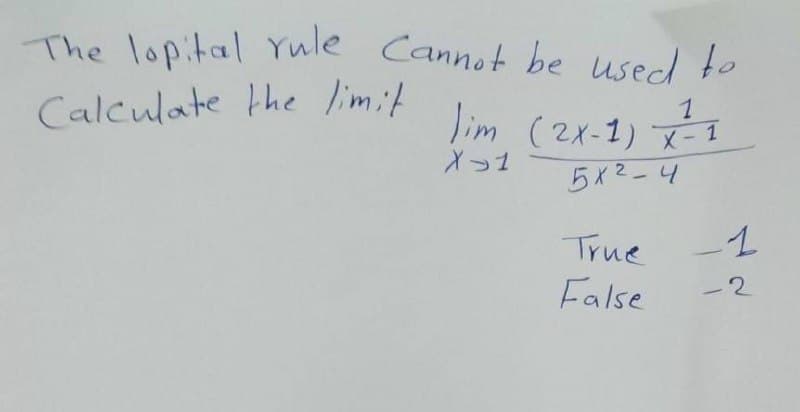 The lopital rule Cannot be used to
Calculate the limit lim x→1 (2x-1) 1/(x-1) / 5x²-4
True -1
False -2